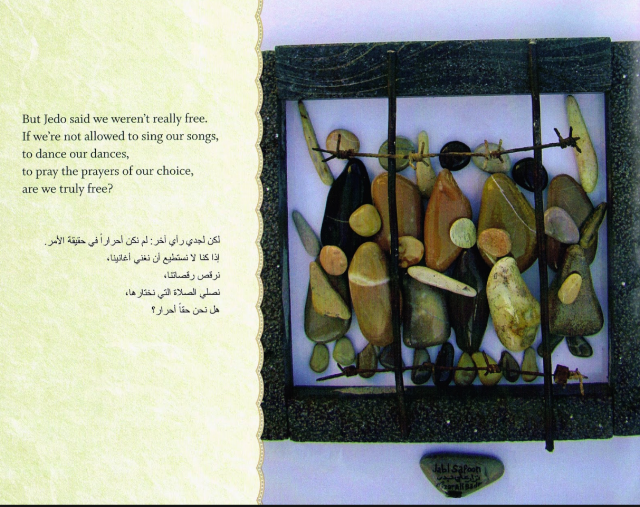 But Jedo said we weren't really free.
If we're not allowed to sing our songs,
to dance our dances,
to pray the prayers of our choice,
are we truly free?
لكن لجدي رأي آخر: لم نكن أحراراً في حقيقة الأمر.
إذا كنا لا نستطيع أن نغني أغانينا،
نرقص رقصاتنا،
نصلي الصلاة التي نختارها،
هل نحن حقاً أحرار؟
Jabl Safoon